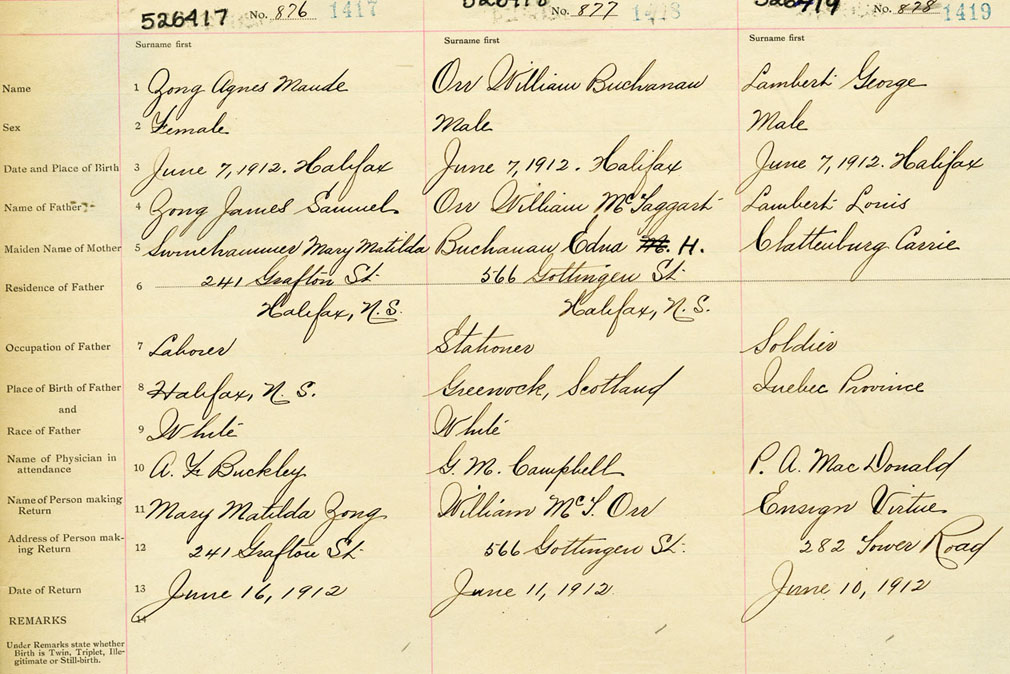 526417 No. 876 1417 No. 877 No. 878 1419
Surname first Surname first Surname first
Name 1 Zong Agnes Maude Orr William Buchanan Lambert George
Sex 2 Female Male Male
Date and Place of Birth 3 June 7, 1912. Halifax June 7, 1912. Halifax June 7, 1912. Halifax
Name of Father 4 Zong James Samuel Orr William McTaggart Lambert Louis
Maiden Name of Mother 5 Swinehammer Mary Matilda Buchanan Edna H. Chattenburg Carrie
241 Grafton St. 566 Gottingen St.
Residence of Father 6
Halifax, N.S. Halifax, N.S.
Occupation of Father 7 Laborer Stationer Soldier
Place of Birth of Father 8 Halifax, N.S. Greenock, Scotland Quebec Province
and
Race of Father 9 White White
Name of Physician in
attendance 10 A. F. Buckley G. M. Campbell P. A. MacDonald
Name of Person making
Return 11 Mary Matilda Zong William McT. Orr Ensign Virtue
Address of Person mak-
ing Return 12 241 Grafton St. 566 Gottingen St. 282 Tower Road
Date of Return 13 June 16, 1912 June 11, 1912 June 10, 1912
REMARKS 14
Under Remarks state whether
Birth is Twin, Triplet, Ille-
gitimate or Still-birth.